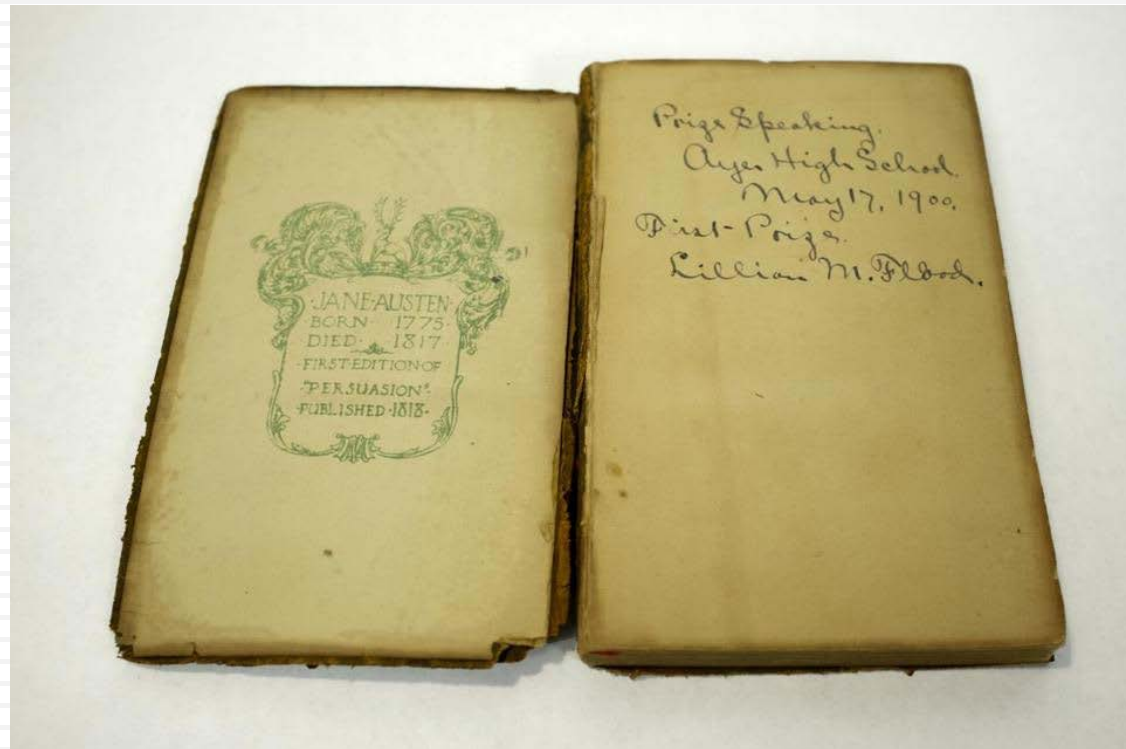 ·JANE·AUSTEN·
·BORN· 1775·
DIED· 1817·
·FIRST·EDITION·OF
·"PERSUASION"·
·PUBLISHED·1818·
Prize Speaking.
Ayer High School.
May 17, 1900.
First Prize.
Lillian M. Flood.